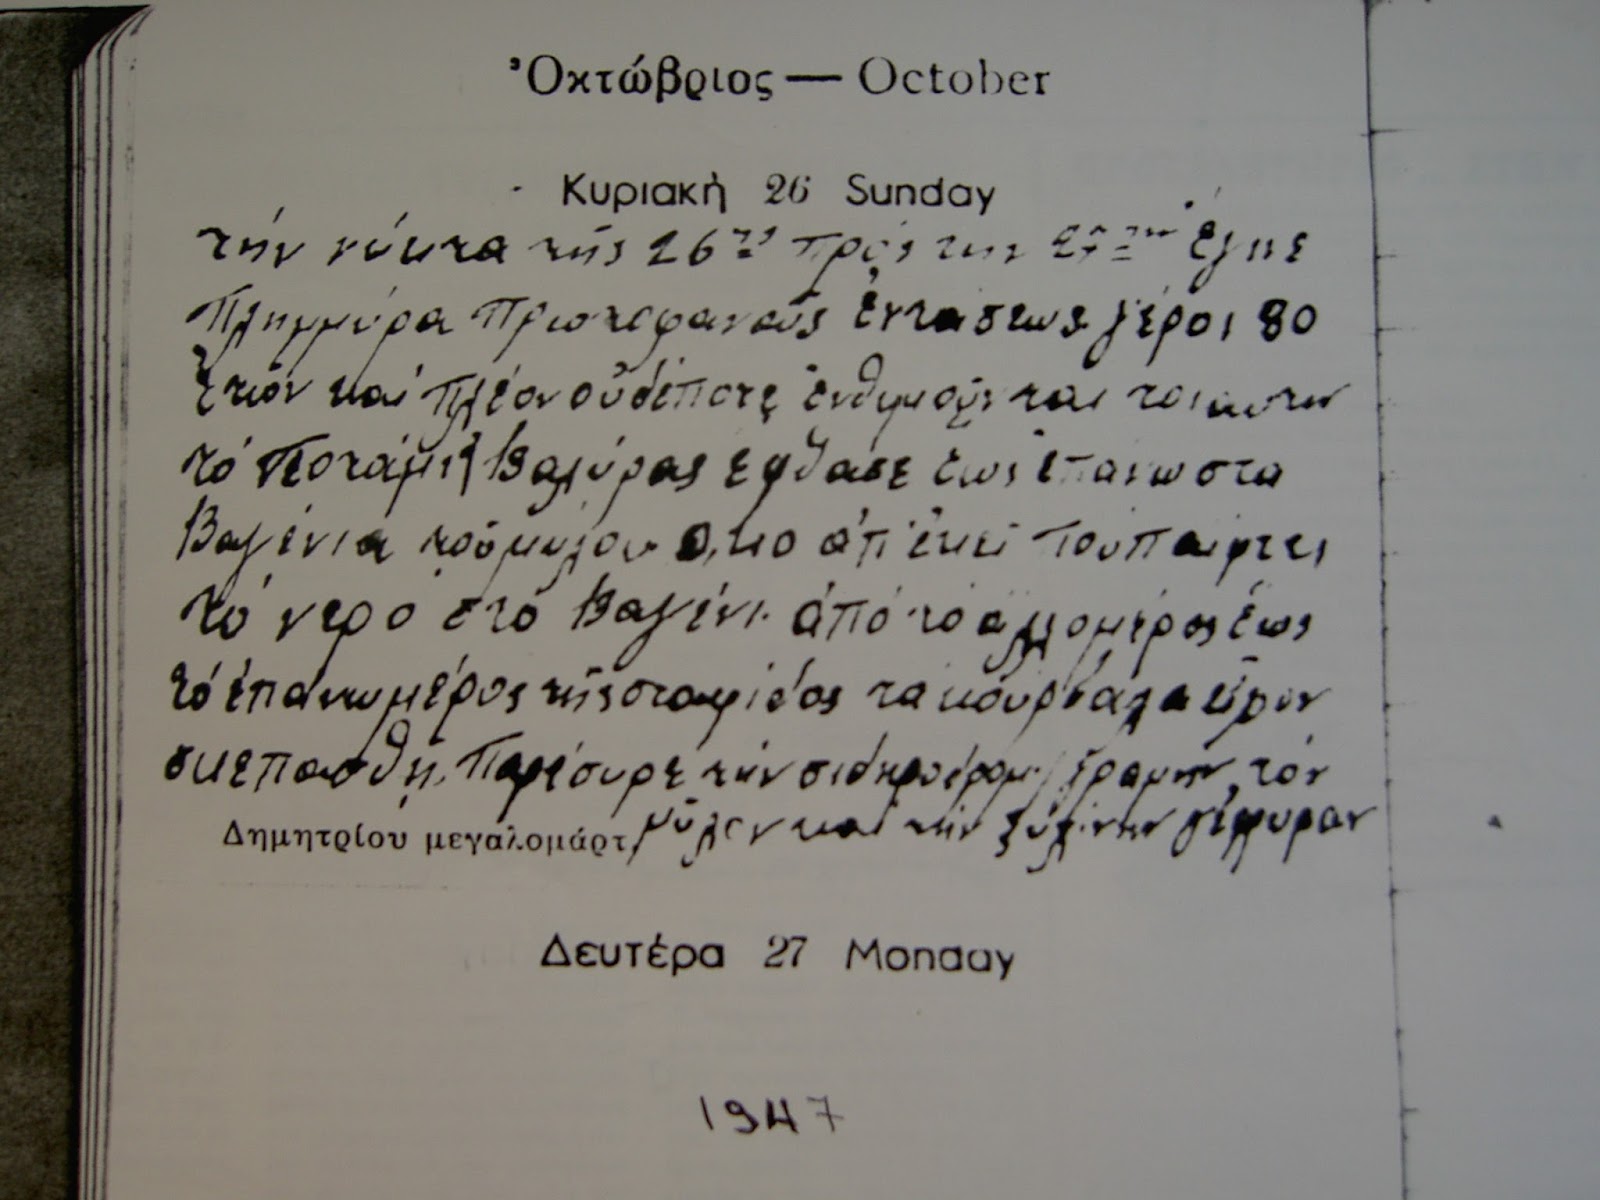 Ὀκτώβριος — October
Κυριακὴ 26 Sunday
τήν νύκτα τῆς 26ης πρός την 27ην ἔγινε
Πλημμύρα Πρωτοφανοῦς ἐντάσεως γέροι 80
ἐτῶν καί πλέον οὐδέποτε ἐνθυμοῦνται τοιαυτην
τό Ποτάμι Βαλύρας εφθασε έως επάνω στα
Βαγένια τοῦ μυλου ἀπ' ἐκεῖ πού παίρνει
τό νερό στό Βαγένι ἀπό τό ἄλλο μέρος έως
τό ἐπάνω μέρος τῆς σταφίδος τα κούρβαλα εἶχον
σκεπασθῆ. Παρέσυρε τήν σιδηροδρομ. γραμμήν τόν
Δημητρίου μεγαλομάρτ. μῦλον καί τήν ξυλίνην γέφυραν
Δευτέρα 27 Monday
1947